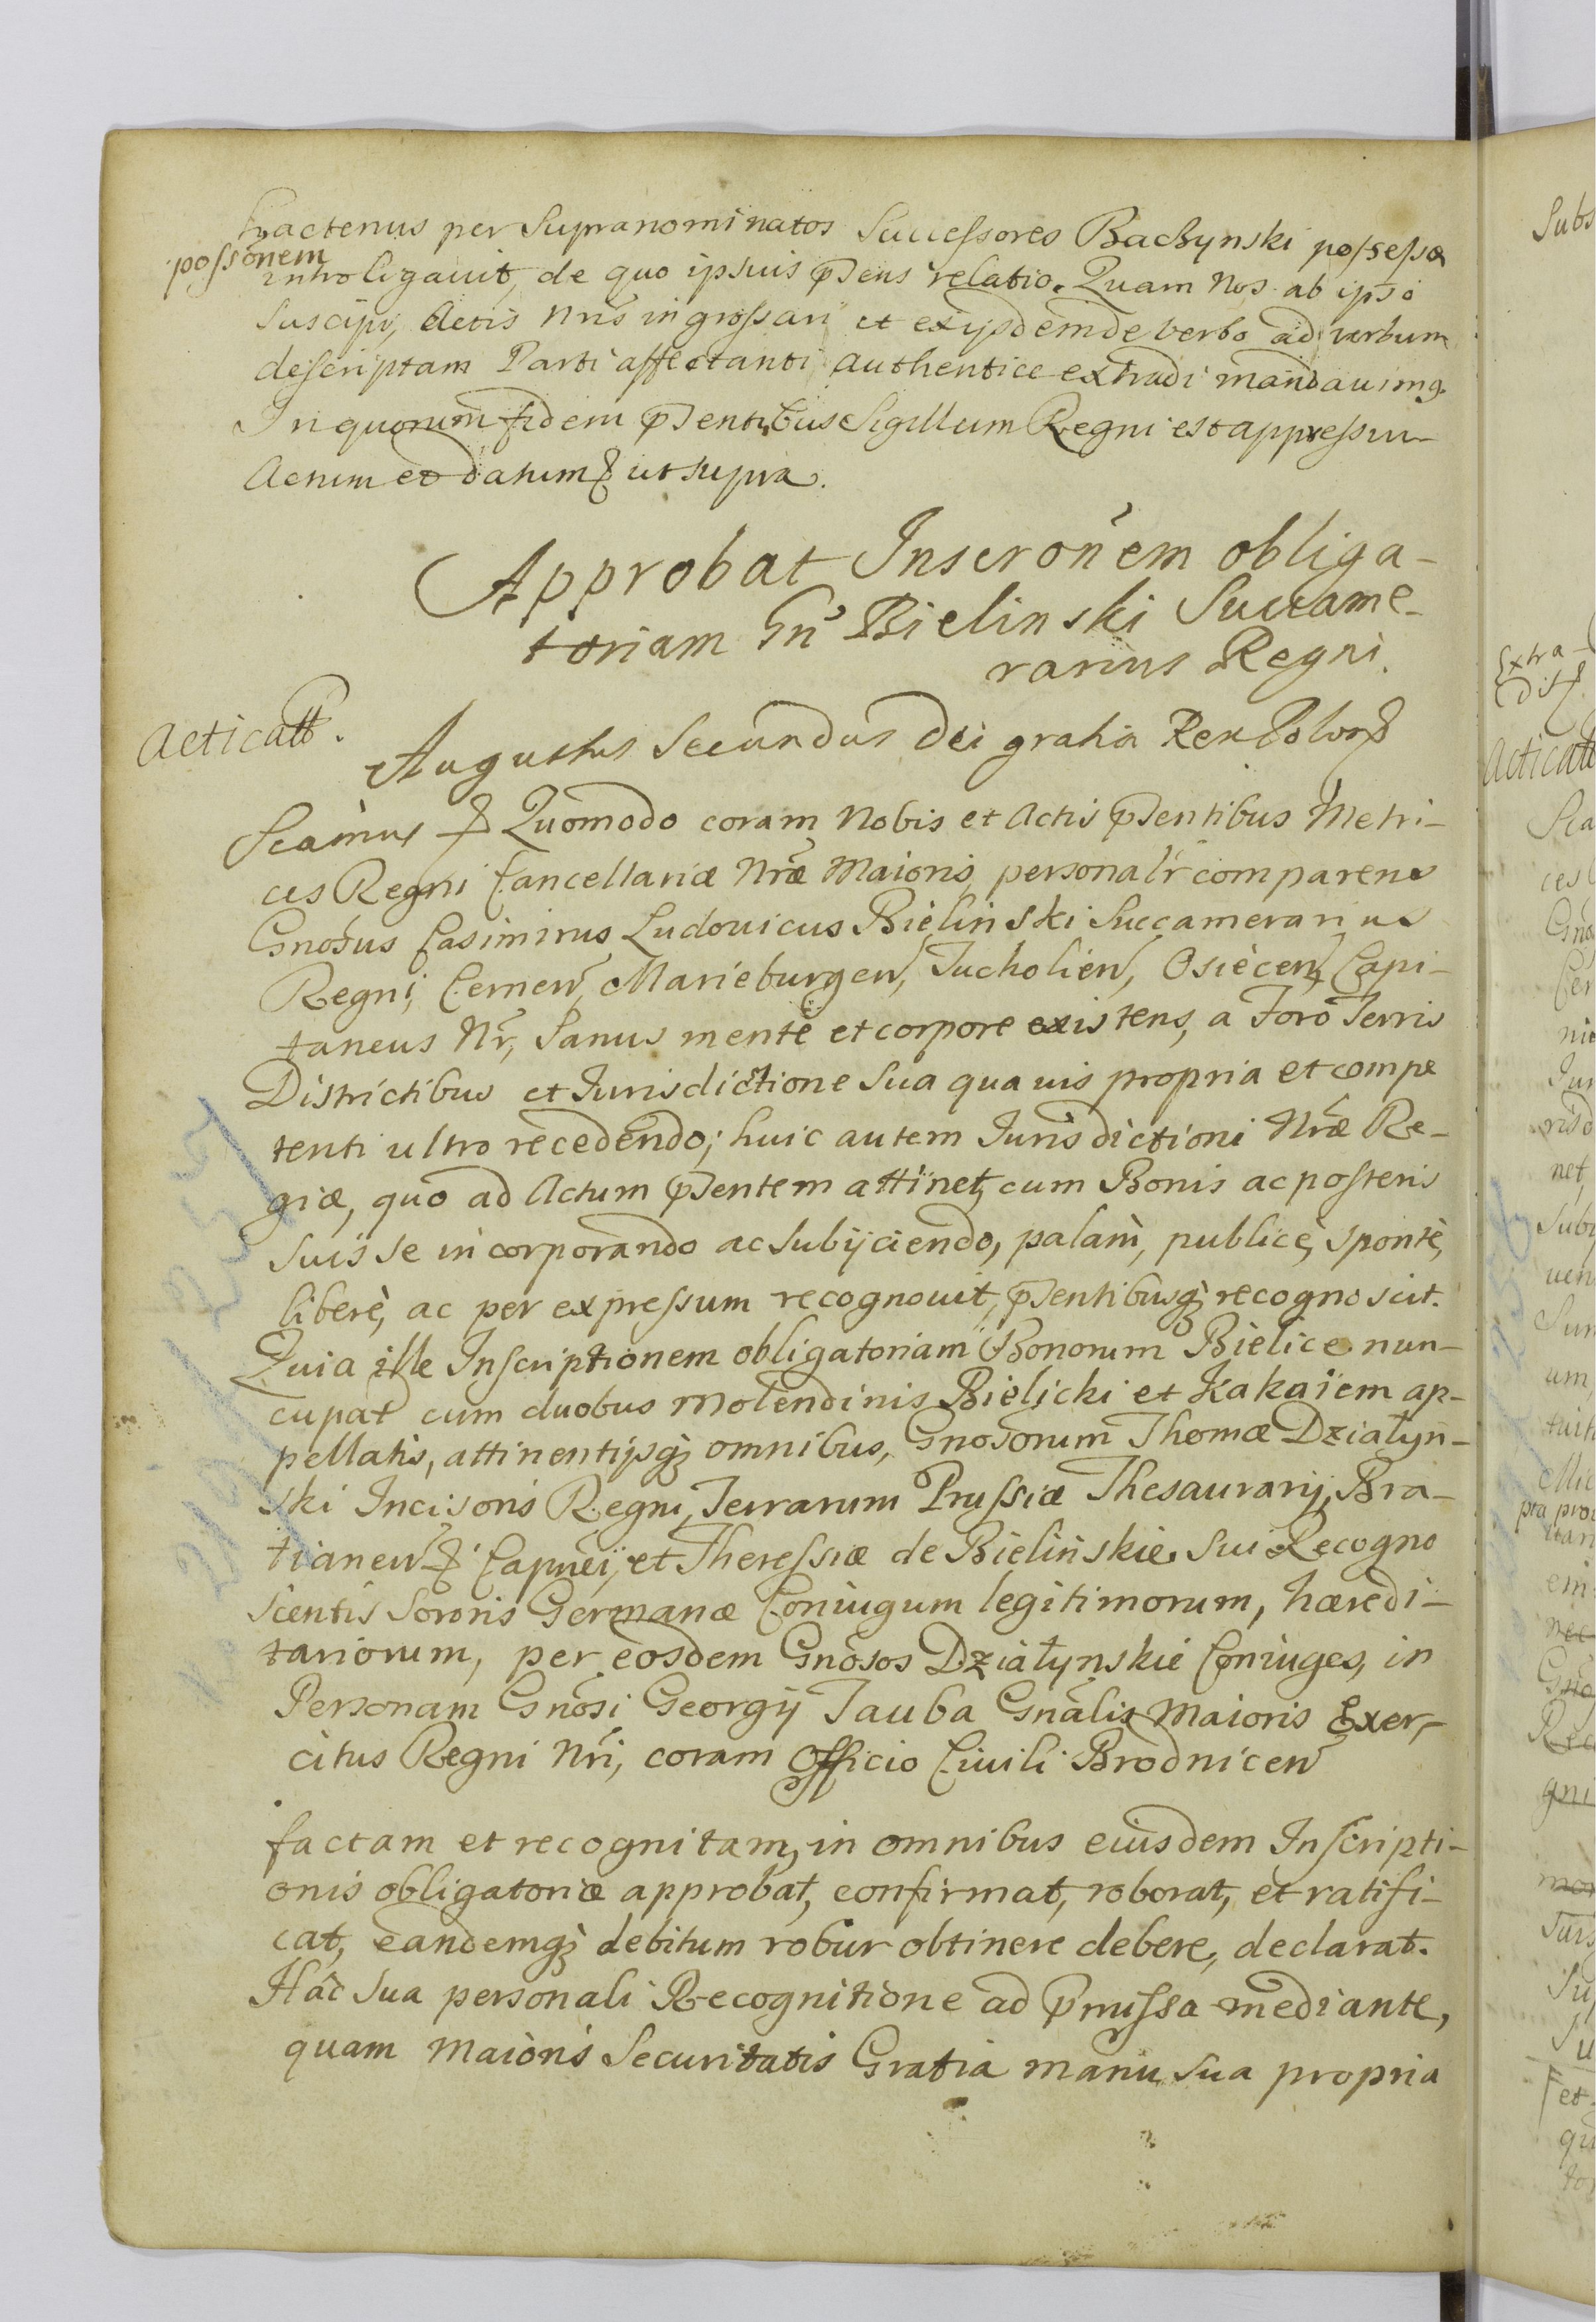 hactenus per Supranominatos Successores Bachynski possessa
possōnem
introligavit, de quo ipsius p̄sens relatio. Quam Nos ab ipso
suscipi, Actis Nris ingrossari et ex ijsdem de verbo ad verbum
descriptam Parti affectanti authentice extradi mandavimꝯ
In quorum fidem p̄sentibus Sigillum Regni est appressum
Actum et datum ut supra.
Approbat Inscrōnem obliga-
toriam Gn̄ Bielinski Succame-
rarius Regni.
Acticatt.
Augustus Secundus Dei gratia Rex Polon
Scimus Quomodo coram Nobis et Actis p̄sentibus Metri-
ces Regni Cancellariæ Nræ Maioris, personalr comparens
Gnosus Casimirus Ludovicus Bielinski Succamerarius
Regni, Cernen, Marieburgen, Tucholien, Osiecen, Capi-
taneus Nr, Sanus mente et corpore existens, a Foro Terris
Districtibus et Iurisdictione Sua quavis propria et compe
tenti ultro recedendo; huic autem Iurisdictioni Nræ Re-
giæ, quo ad Actum p̄sentem attinet, cum Bonis ac posteris
suis se incorporando ac Subijciendo, palàm, publicè, spontè,
liberè, ac per expressum recognovit, p̄sentibusq; recognoscit.
Quia ille Inscriptionem obligatoriam Bonorum Bielice nun-
cupat cum duobus Molendinis Bielicki et Kakaiem ap-
pellatis, attinentijsq; omnibus, Gnosorum Thomæ Działyn-
ski Incisoris Regni, Terrarum Prussiæ Thesaurarij, Bra-
tianen Capnei, et Theressiæ de Bielinskie Sui Recogno
scentis Sororis Germanæ Coniugum legitimorum, hæredi-
tariorum, per eosdem Gnosos Działynskie Coniuges, in
Personam Gnosi Georgij Tauba Gnālis Maioris Exer-
citus Regni Nri, coram Officio Civili Brodnicen
factam et recognitam, in omnibus eiusdem Inscripti-
onis obligatoriæ approbat, confirmat, roborat, et ratifi-
cat, eandemq; debitum robur obtinere debere, declarat.
Hâc sua personali Recognitione ad p̄missa mediante,
quam Maioris Securitatis Gratia manu sua propria